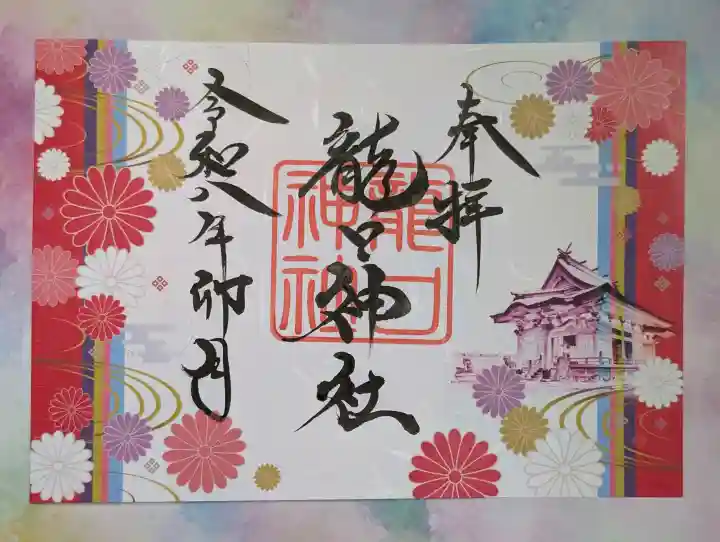 奉拝
龍口神社
龍口神社
令和八年卯月